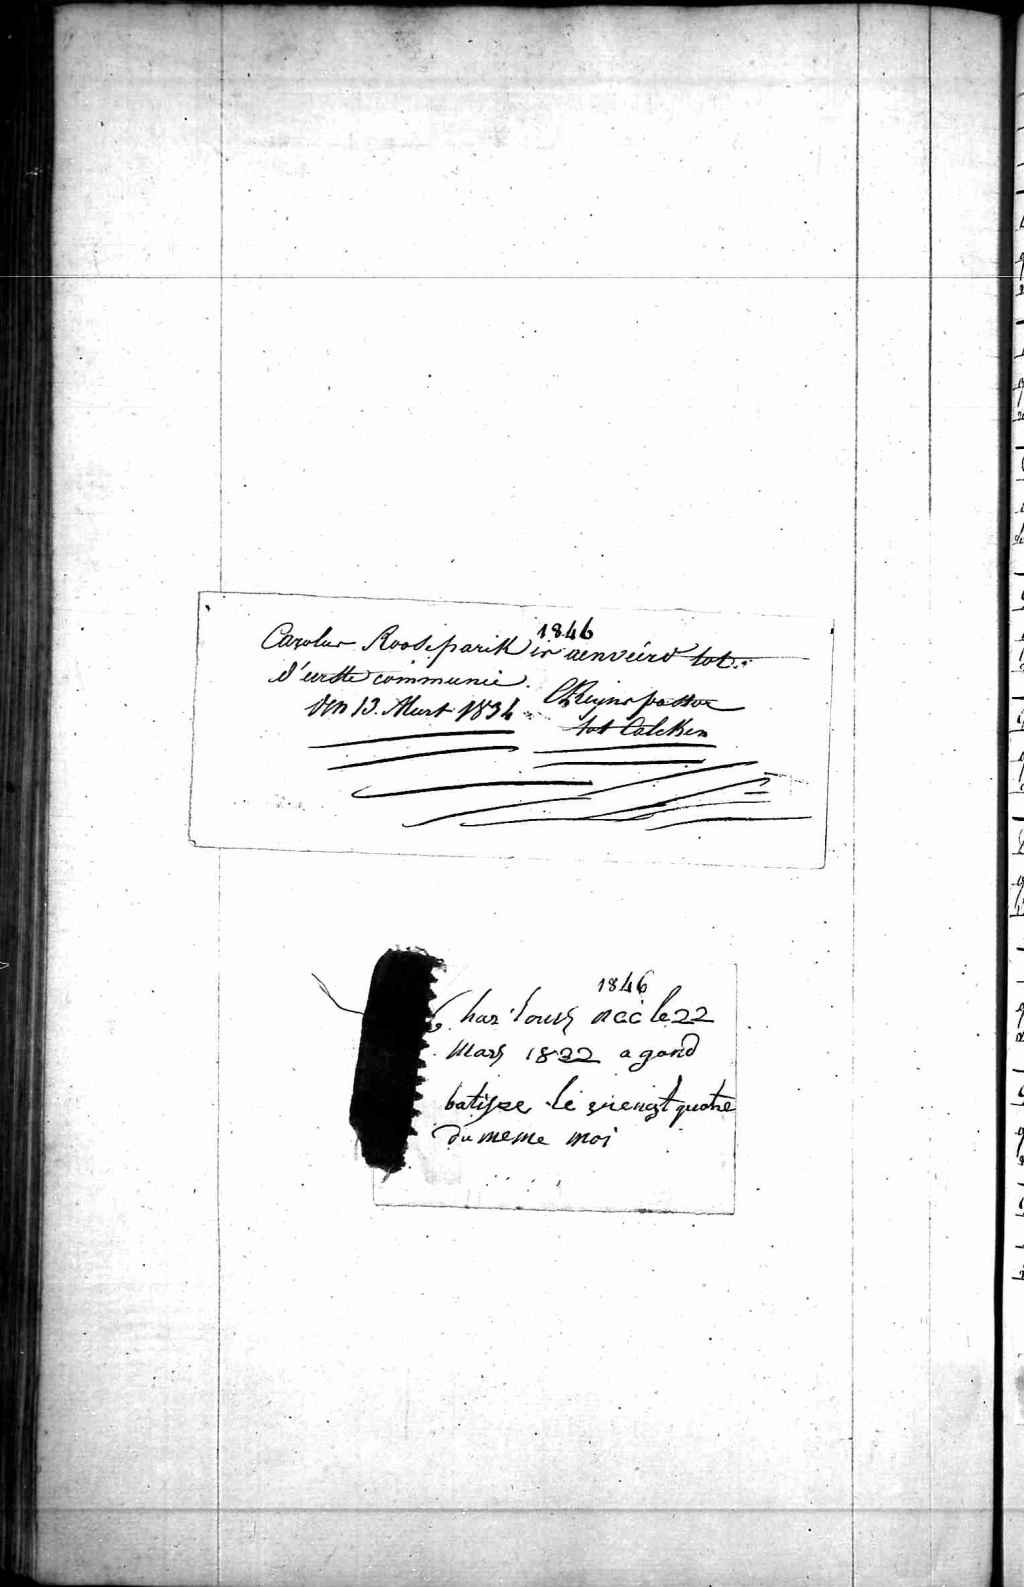 1846
Carolus Rooseparik is aenveird tot
d'eerste communie.
den 13. Mart 1834 pastor
tot Calcken
1846
Charlours née le 22
Mars 1822 a gand
batisze le viengt quatre
du meme moi